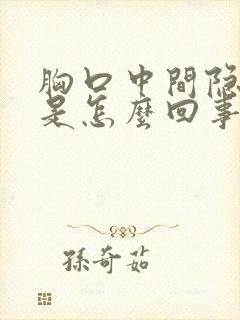 胸口中間隐
是怎麼回事
孫奇茹